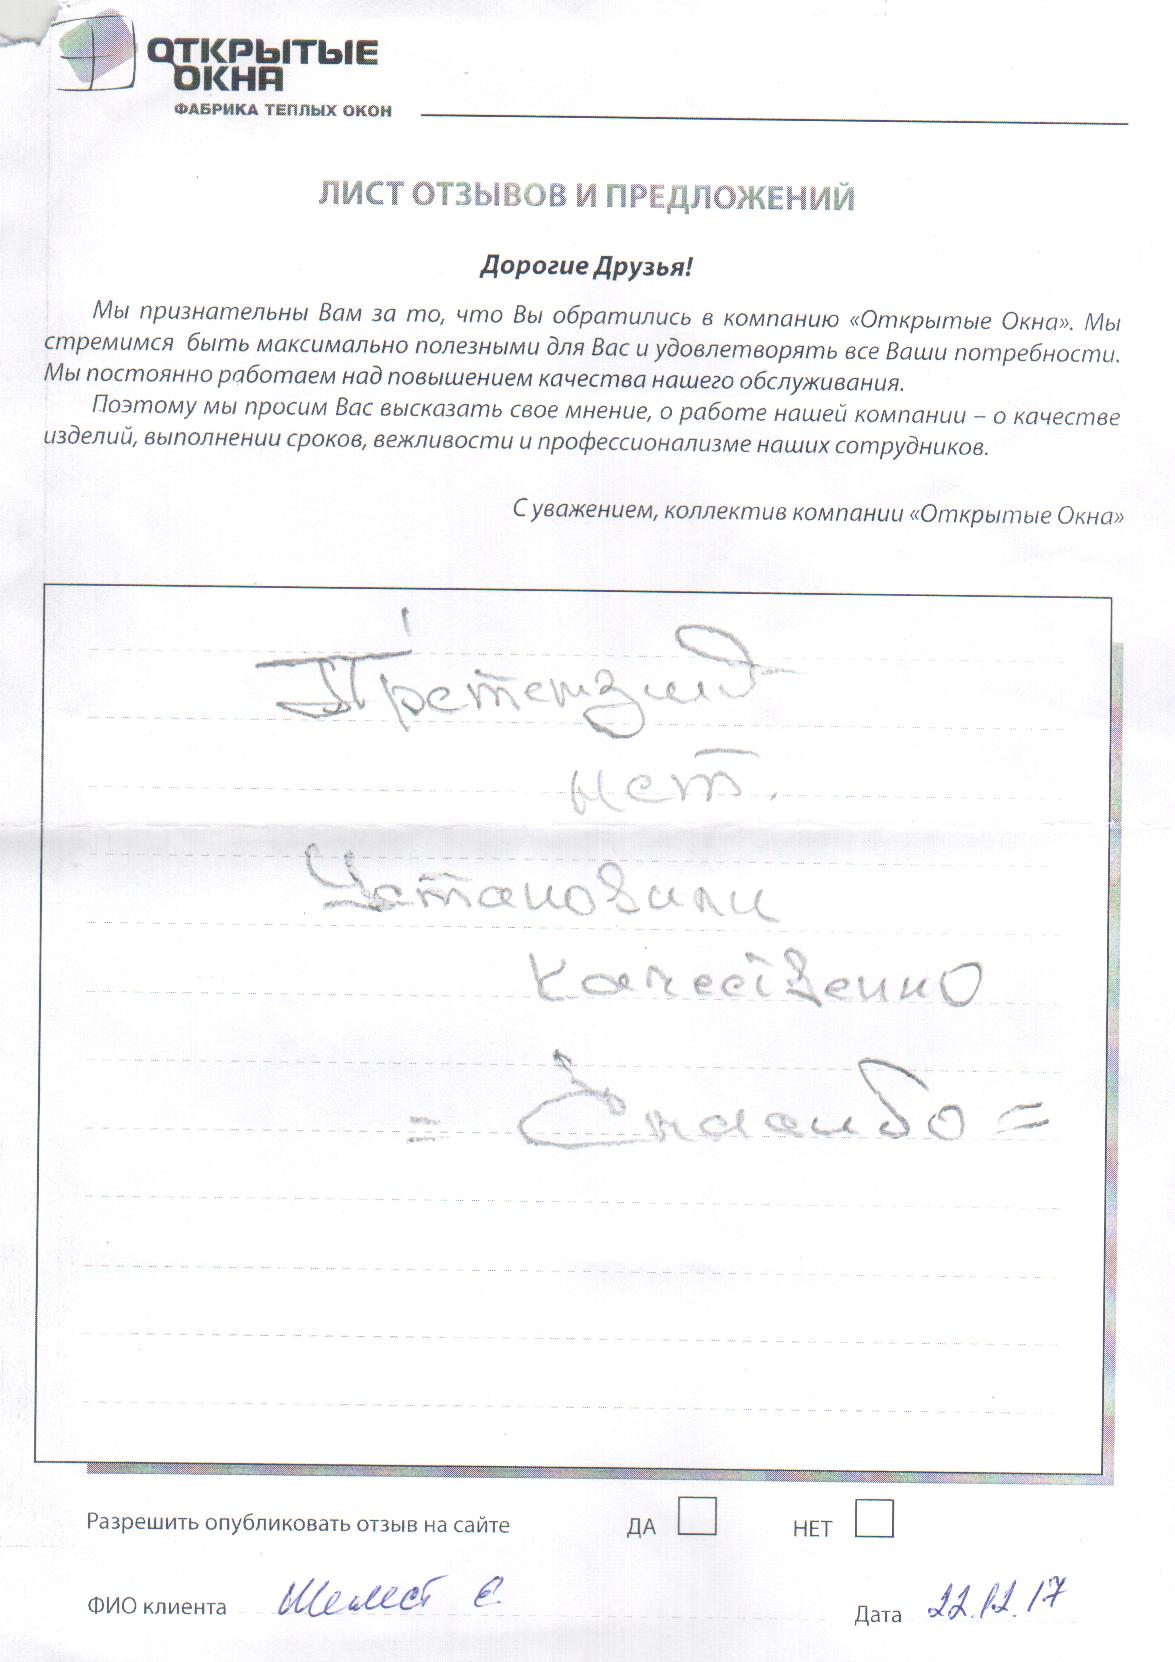 ОТКРЫТЫЕ
ОКНА
ФАБРИКА ТЕПЛЫХ ОКОН
ЛИСТ ОТЗЫВОВ И ПРЕДЛОЖЕНИЙ
Дорогие Друзья!
Мы признательны Вам за то, что Вы обратились в компанию «Открытые Окна». Мы
стремимся быть максимально полезными для Вас и удовлетворять все Ваши потребности.
Мы постоянно работаем над повышением качества нашего обслуживания.
Поэтому мы просим Вас высказать свое мнение, о работе нашей компании – о качестве
изделий, выполнении сроков, вежливости и профессионализме наших сотрудников.
С уважением, коллектив компании «Открытые Окна»
Претензий
нет.
Установили
качественно
= Спасибо =
Разрешить опубликовать отзыв на сайте ДА НЕТ
ФИО клиента Шелест Е. Дата 22.12.17